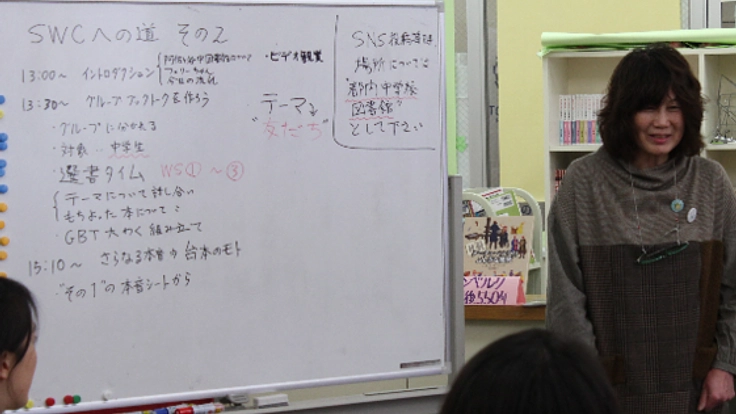 SWCへの道 その2
13:00〜 イントロダクション
・ビデオ観賞
今日の流れ
13:30〜 グループブックトークを作ろう
・グループに分かれる
・対象‥中学生
・選書タイム WS①〜③
テーマについて話し合い
もちよった本について 〃
・GBT大わく組み立て
15:10〜 さらなる本音⇒台本のモト
・"その1"の本音シートから
テーマは
"友だち"
SNS
場所については
"都内中学校
図書館"
として下さい